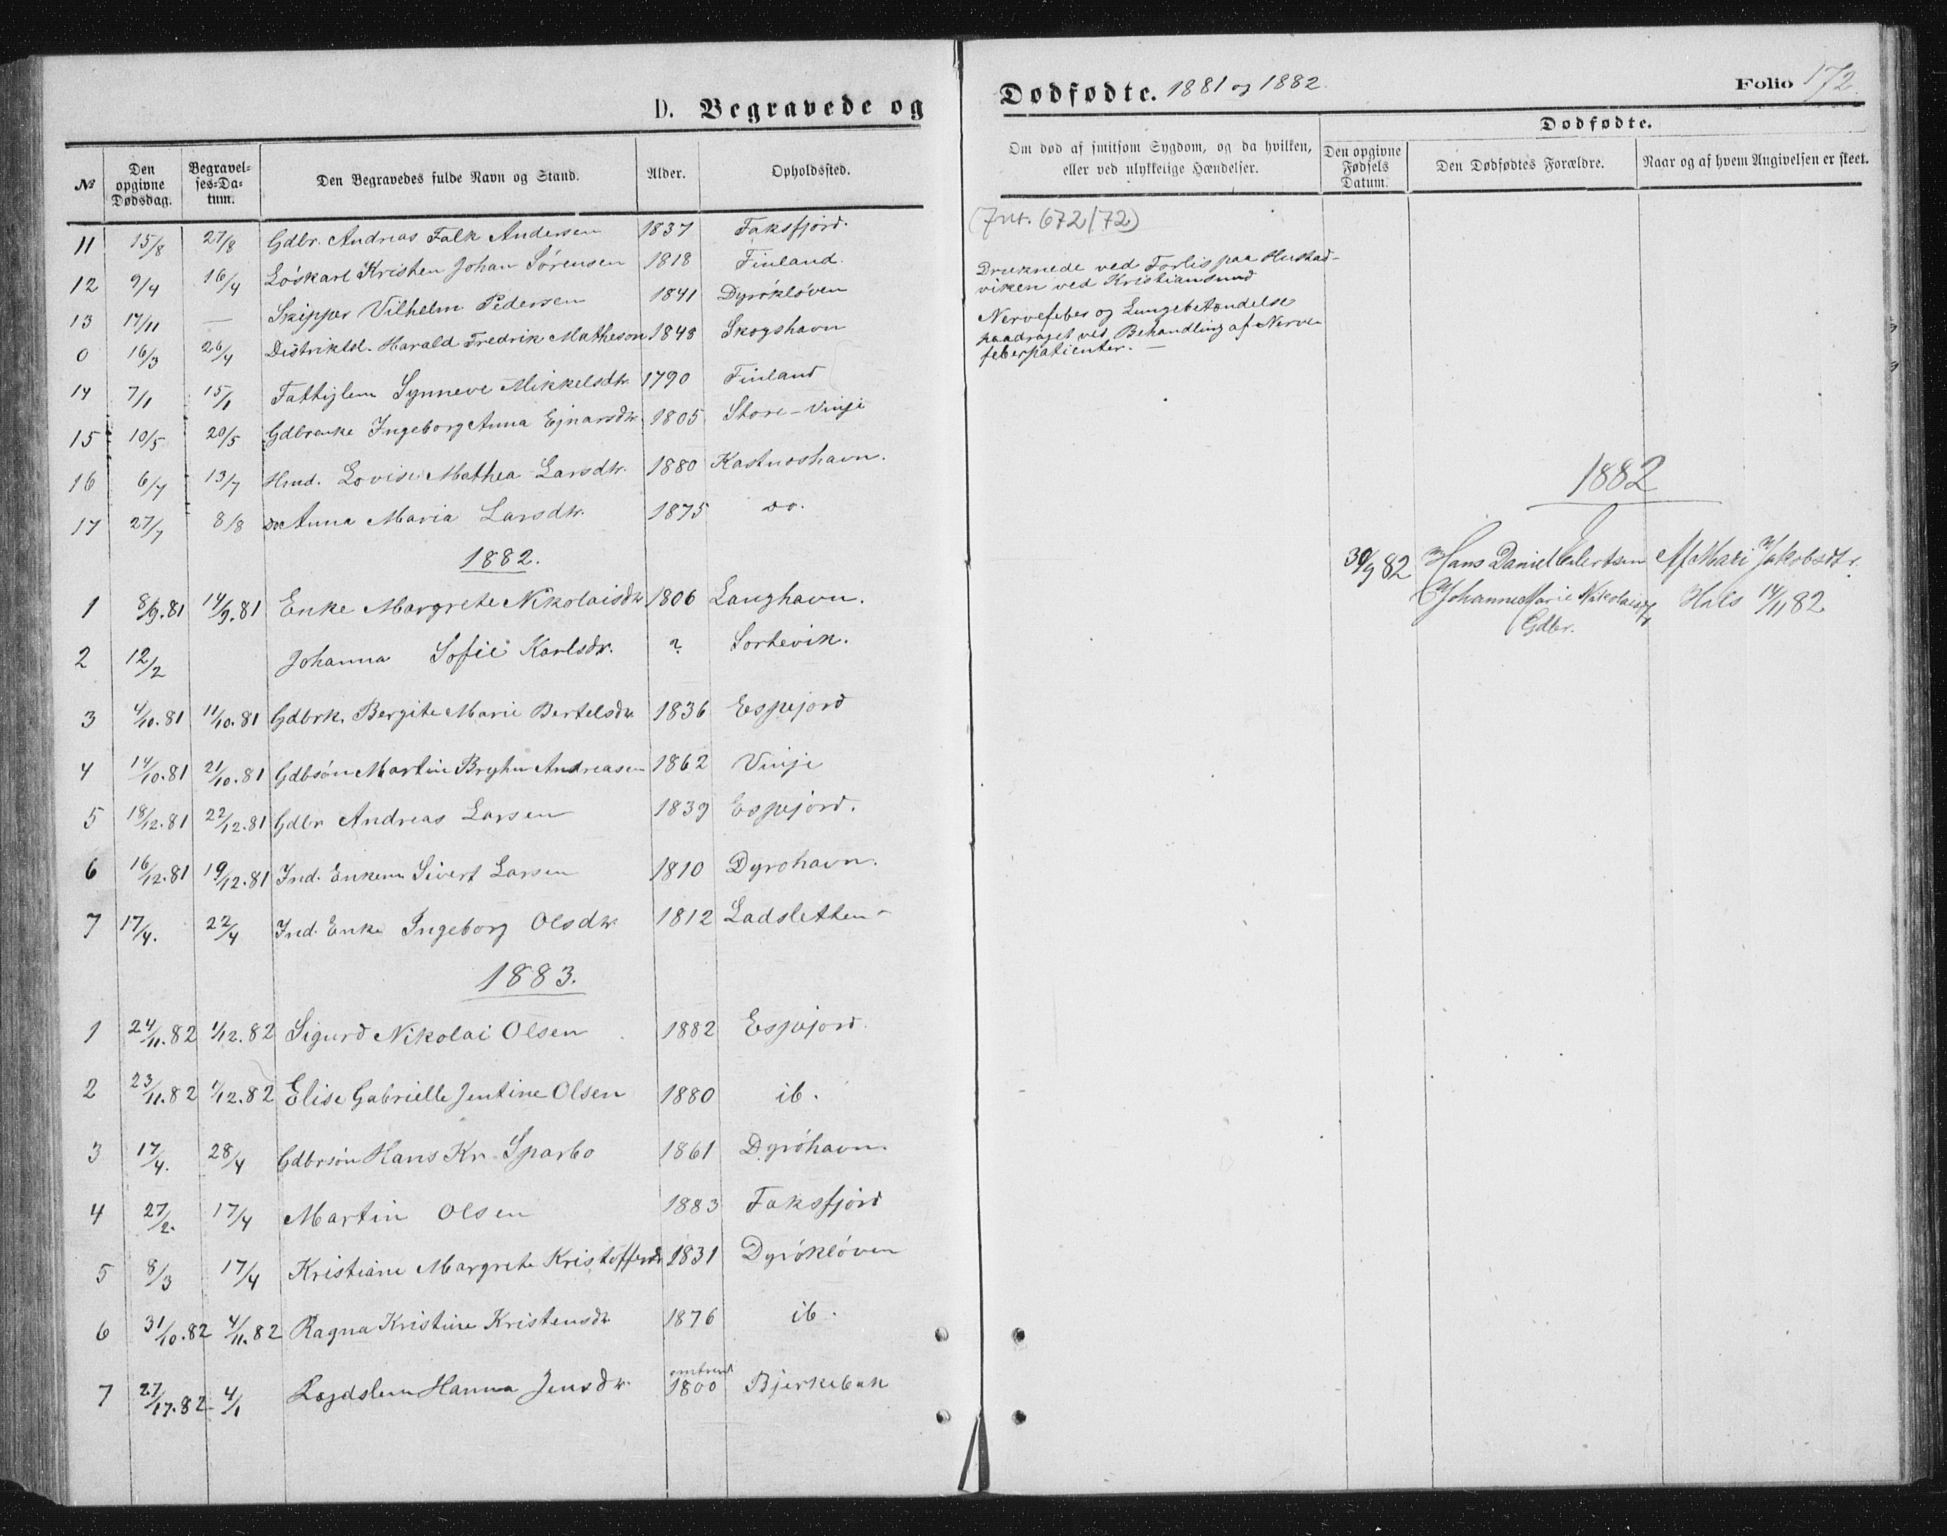 D. Begravede og
Dødfødte. 1881 og 1882.
Folio 172.
№
Den opgivne Dødsdag.
Begravelses-Datum.
Den Begravedes fulde Navn og Stand.
Alder.
Opholdssted.
Om død af smitsom Sygdom, og da hvilken, eller ved ulykkelige Hændelser.
Dødfødte.
Den opgivne Fødsels Datum.
Den Dødfødtes Forældre.
Naar og af hvem Angivelsen er skeet.
11 15/8 27/8 Gdbr. Andreas Falk Andersen 1837 Faksfjord.
12 9/4 16/4 Löskarl Kristen Johan Sørensen 1818 Finland.
13 17/11 — Skipper Vilhelm Pedersen 1841 Dyröklöven
0 16/3 26/4 Distriktsl. Harald Fredrik Matheson 1848 Skogshavn
14 7/1 15/1 Fattiglem Synneve Mikkelsdtr 1790 Finland
15 10/5 20/5 Gdbrenke Ingeborg Anna Ejnarsdtr 1805 Store-Vinje
16 6/7 13/7 Hmd. Lovise Mathea Larsdtr. 1880 Kastneshavn.
17 27/7 8/8 Do Anna Maria Larsdtr. 1875 do.
1882.
1 8/9.81 14/9.81 Enke Margrete Nikolaisdtr 1806 Langhavn.
2 12/2 Johanna Sofie Karlsdtr. ? Sortevik.
3 4/10.81 11/10.81 Gdbrk. Bergite Marie Bertelsdtr 1836 Espejord
4 14/10.81 21/10.81 Gdbsøn Martin Bryhn Andreasen 1862 Vinje
5 18/12.81 22/12.81 Gdbr Andreas Larsen 1839 Espejord.
6 16/12.81 19/12.81 Ind. Enkem Sivert Larsen 1810 Dyrohavn.
7 17/4. 22/4 Ind. Enke Ingeborg Olsdtr. 1812 Ladsletten
1883.
1 24/11.82 1/12.82 Sigurd Nikolai Olsen 1882 Espejord.
2 23/11.82 1/12.82 Elise Gabrielle Jentine Olsen 1880 ib.
3 17/4. 28/4 Gdbrsön Hans Kr. Sparbo 1861 Dyröhavn.
4 27/2. 17/4 Martin Olsen 1883 Faksfjörd
5 8/3 17/4 Kristiane Margrete Kristoffersd 1831 Dyröklöven
6 31/10.82 4/11.82 Ragna Kristine Kristensdtr 1876 ib.
7 27/17.82 4/1 Lægdslem Hanna Jensdtr. omtrent 1800 Bjerkebak
(Jnr. 672/72)
Druknede ved Forlis paa Hustad-
viken ved Kristiansund
Nervefeber og Lungebetændelse
paadraget ved Behandling af Nerve-
feberpatienter. —
1882
30/9 82 Hans Daniel Eilertsen Af Mari Jakobsdtr.
Johanna Marie Nikolaisdtr Hals 14/11 82
Gdbr.